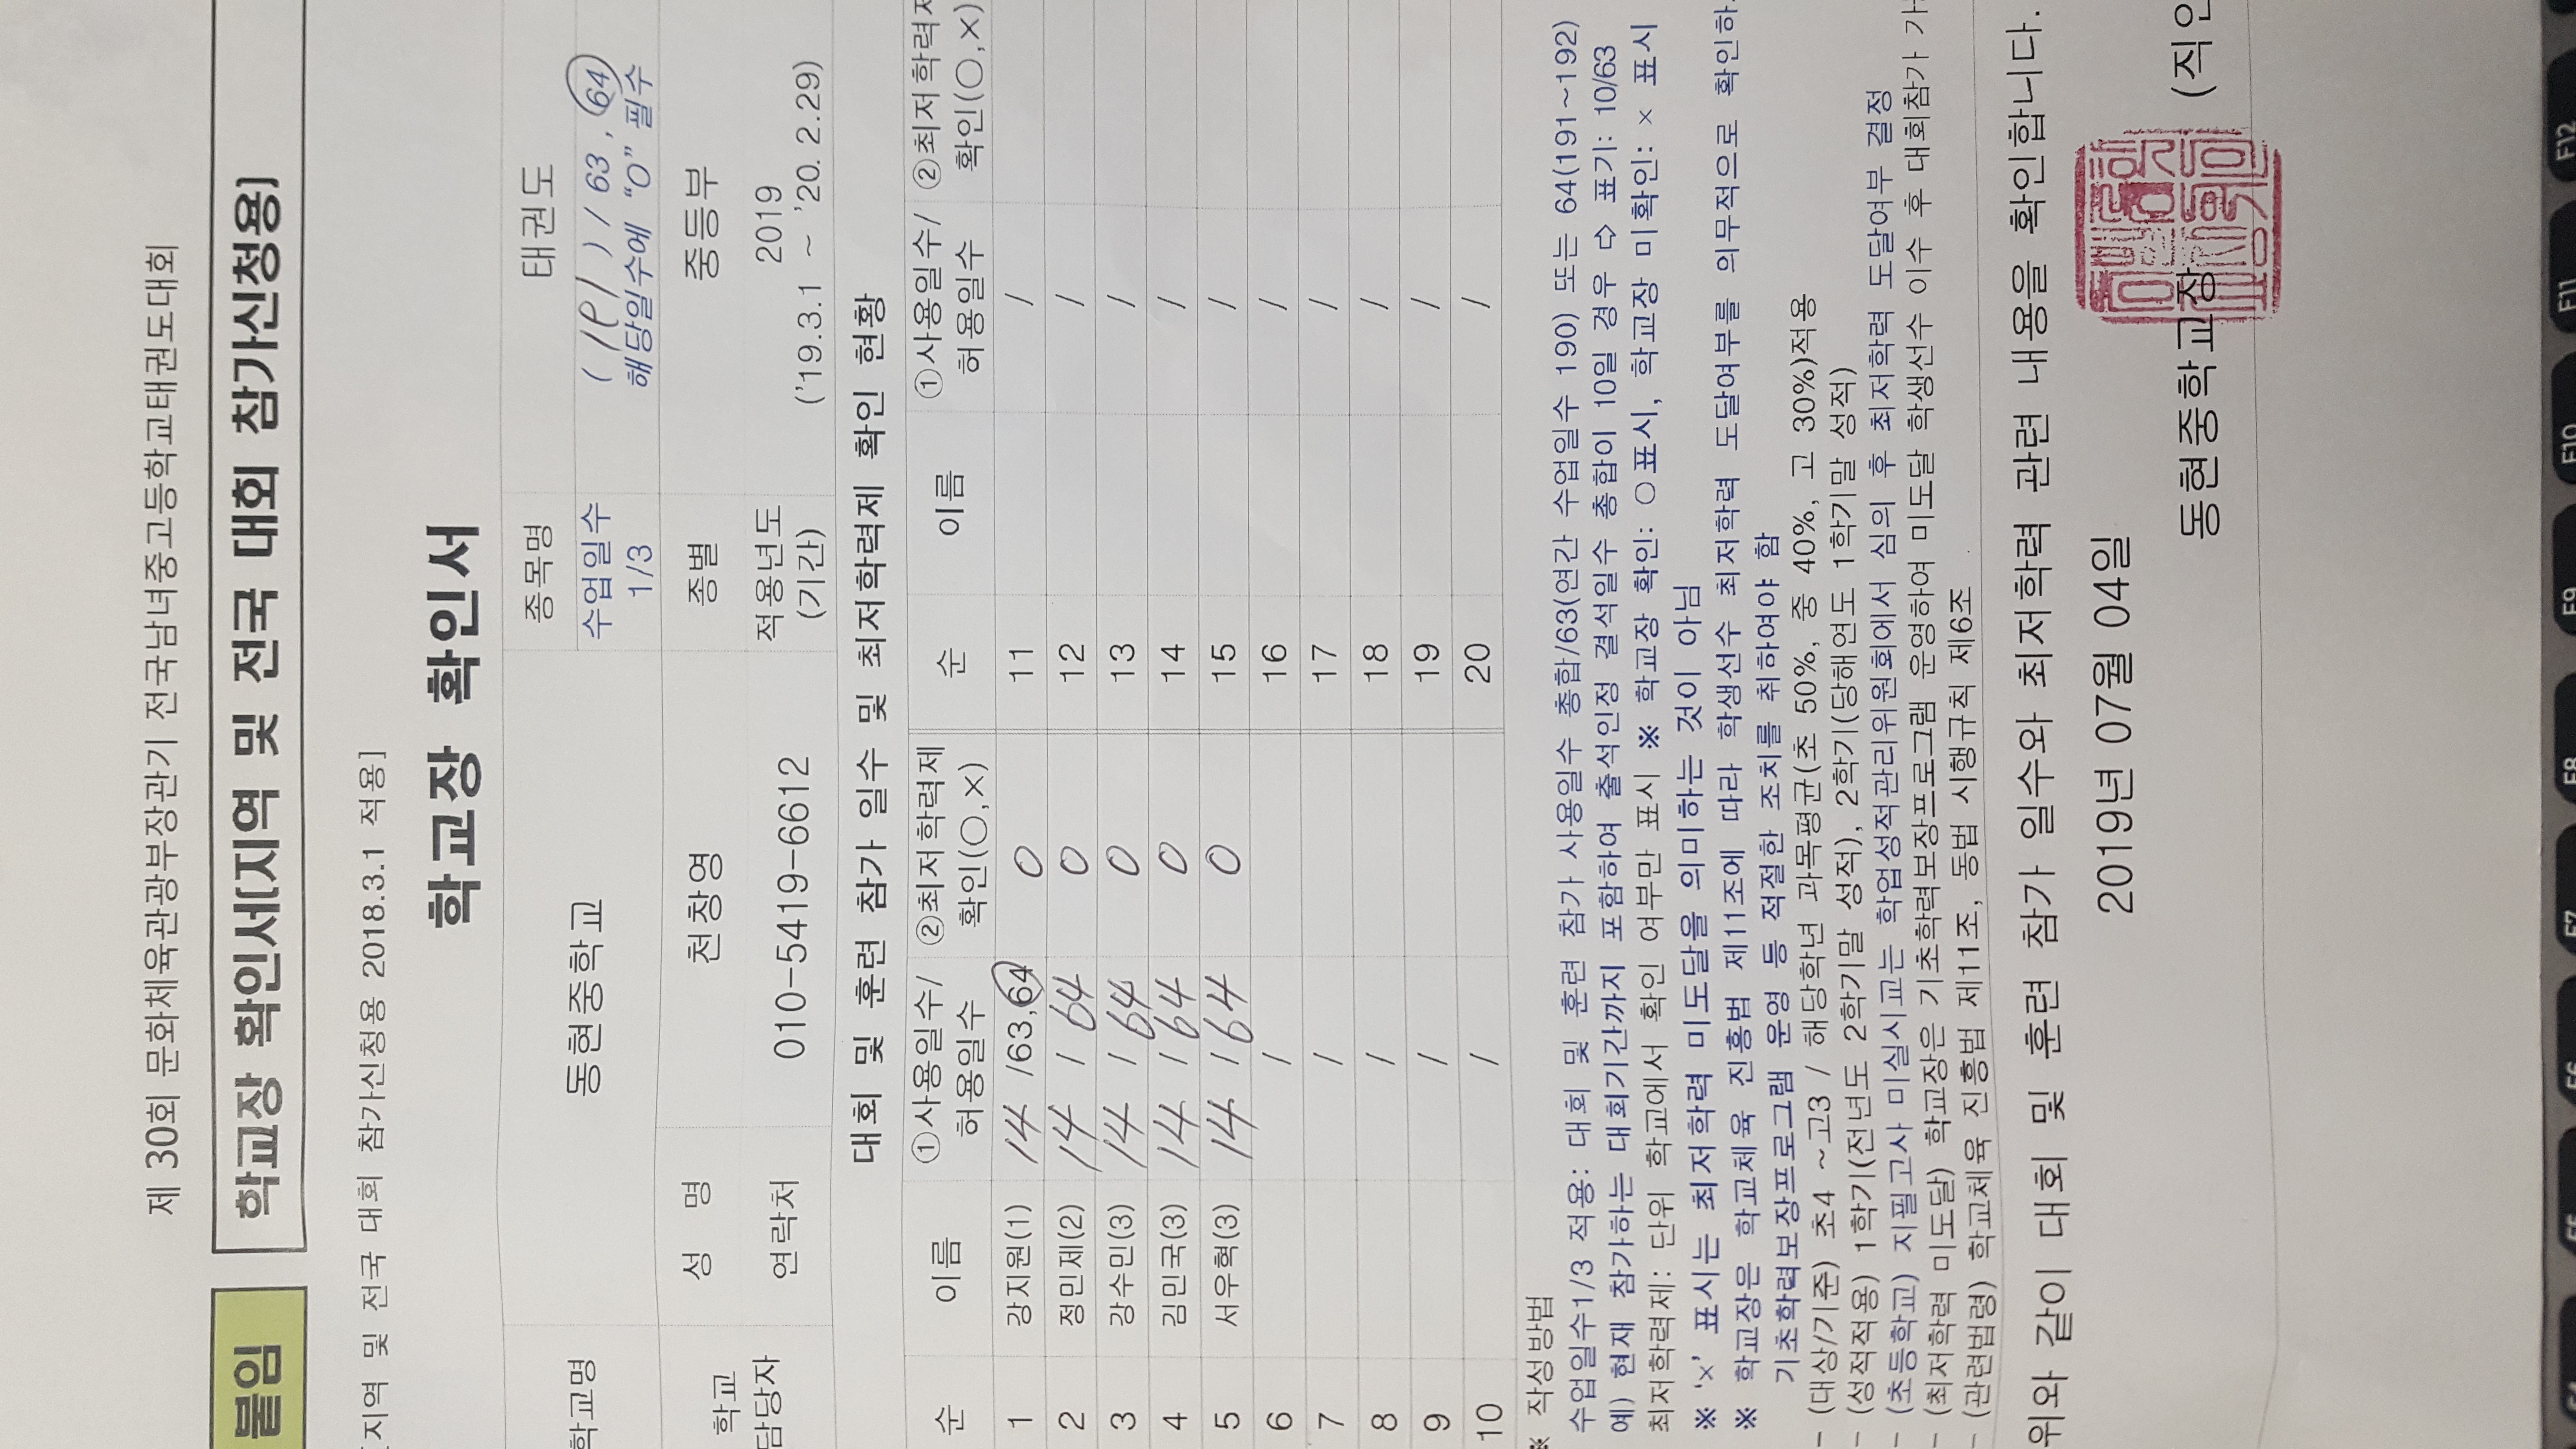 제 30회 문화체육관광부장관기 전국남녀중고등학교태권도대회
붙임 학교장 확인서(지역 및 전국 대회 참가신청용)
지역 및 전국 대회 참가신청용 2018.3.1 적용]
학교장 확인서
학교명 동현중학교 종목명 태권도
수업일수 1/3 ( 191 ) / 63 , 64
해당일수에 "O" 필수
학교 담당자 성 명 천창영 종별 중등부
연락처 010-5419-6612 적용년도 (기간) 2019
('19.3.1 ~ '20. 2.29)
대회 및 훈련 참가 일수 및 최저학력제 확인 현황
순 이름 ①사용일수/ 허용일수 ②최저학력제 확인(○,×) 순 이름 ①사용일수/ 허용일수 ②최저학력 확인(○,×)
1 강지원(1) 14 /63,64 O 11 /
2 정민제(2) 14 / 64 O 12 /
3 강수민(3) 14 / 64 O 13 /
4 김민국(3) 14 / 64 O 14 /
5 서우혁(3) 14 / 64 O 15 /
6 / 16 /
7 / 17 /
8 / 18 /
9 / 19 /
10 / 20 /
※ 작성방법
수업일수1/3 적용: 대회 및 훈련 참가 사용일수 총합/63(연간 수업일수 190) 또는 64(191~192)
예) 현재 참가하는 대회기간까지 포함하여 출석인정 결석일수 총합이 10일 경우 ⇨ 표기: 10/63
최저학력제: 단위 학교에서 확인 여부만 표시 ※ 학교장 확인: ○표시, 학교장 미확인: × 표시
※ '×' 표시는 최저학력 미도달을 의미하는 것이 아님
※ 학교장은 학교체육 진흥법 제11조에 따라 학생선수 최저학력 도달여부를 의무적으로 확인하
기초학력보장프로그램 운영 등 적절한 조치를 취하여야 함
- (대상/기준) 초4 ~고3 / 해당학년 과목평균(초 50%, 중 40%, 고 30%)적용
- (성적적용) 1학기(전년도 2학기말 성적), 2학기(당해연도 1학기말 성적)
- (초등학교) 지필고사 미실시교는 학업성적관리위원회에서 심의 후 최저학력 도달여부 결정
- (최저학력 미도달) 학교장은 기초학력보장프로그램 운영하여 미도달 학생선수 이수 후 대회참가 가
- (관련법령) 학교체육 진흥법 제11조, 동법 시행규칙 제6조
위와 같이 대회 및 훈련 참가 일수와 최저학력 관련 내용을 확인합니다.
2019년 07월 04일
동현중학교장 (직인
F12
F11
F10
F9
F8
F7
F6
F5
F4